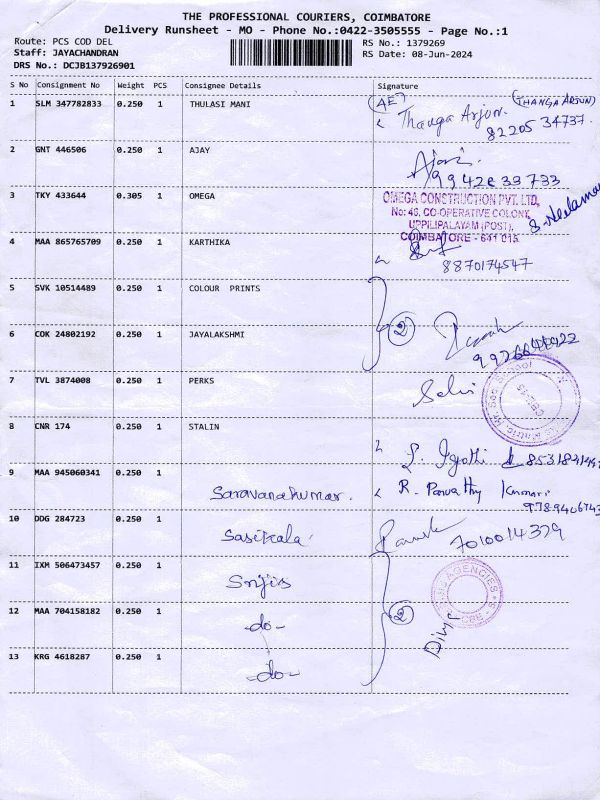 THE PROFESSIONAL COURIERS, COIMBATORE
Delivery Runsheet - MO - Phone No.:0422-3505555 - Page No.:1
Route: PCS COD DEL
Staff: JAYACHANDRAN
DRS No.: DCJB137926901
RS No.: 1379269
RS Date: 08-Jun-2024
S No Consignment No Weight PCS Consignee Details Signature
1 SLM 347782833 0.250 1 THULASI MANI
Thanga Arjun. (THANGA ARJUN)
82205 34737.
2 GNT 446506 0.250 1 AJAY
3 TKY 433644 0.305 1 OMEGA
OMEGA CONSTRUCTION PVT. LTD,
No: 46, CO-OPERATIVE COLONY,
UPPILIPALAYAM (POST),
COIMBATORE - 641 015.
4 MAA 865765709 0.250 1 KARTHIKA
8870174547
5 SVK 10514489 0.250 1 COLOUR PRINTS
2
6 COK 24802192 0.250 1 JAYALAKSHMI
7 TVL 3874008 0.250 1 PERKS
Selvi
8 CNR 174 0.250 1 STALIN
9 MAA 945060341 0.250 1 Saravanakumar. R. Parvathy Kumari
10 DDG 284723 0.250 1 Sasikala
7010014379
11 IXM 506473457 0.250 1 Srijis
12 MAA 704158182 0.250 1 -do- 2
13 KRG 4618287 0.250 1 -do-